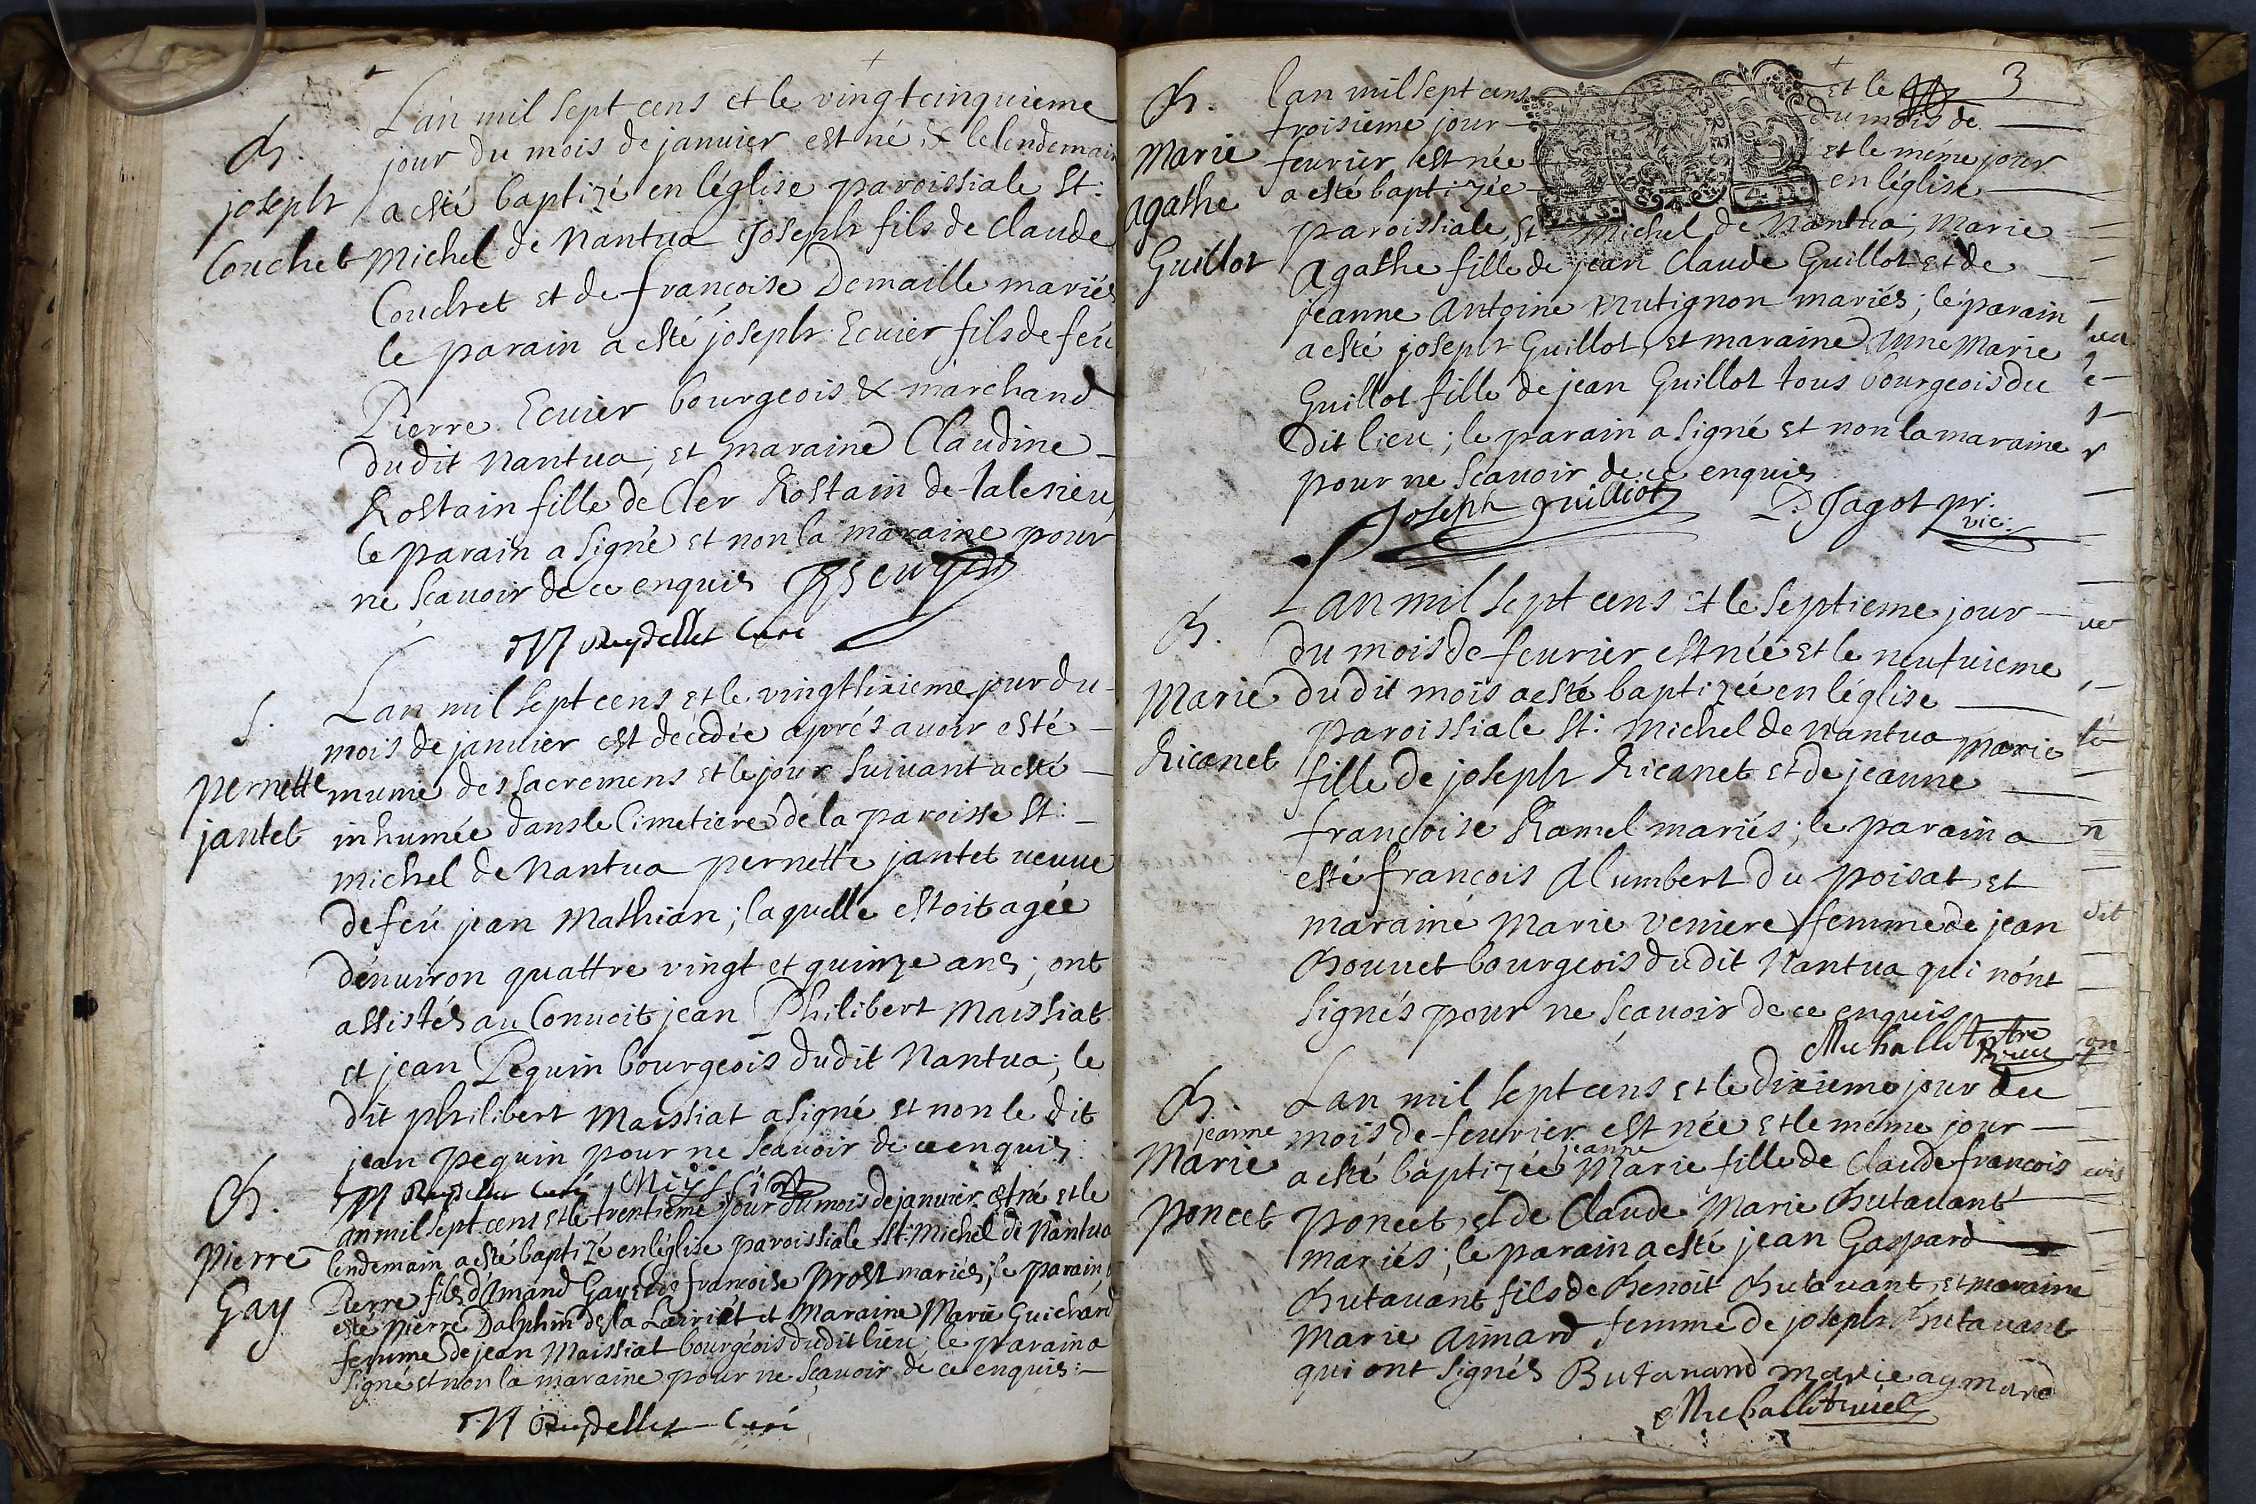 L'an mil sept cens et le vingtcinquieme
jour du mois de janvier est né & le lendemain
a esté baptizé en léglise paroissiale St:
Michel de Nantua Joseph fils de Claude
Couchet et de françoise Demaille mariés
le parain a esté joseph Ecuier fils de feu
Pierre Ecuier bourgeois & marchand
dudit Nantua; et maraine Claudine
Rostain fille de Cler Rostain de
le parain a signé et non la maraine pour
ne scavoir de ce enquis
B.
joseph
Couchet
Curé
Lan mil sept cens et le vingtsixieme jour du
mois de janvier est décédée aprés avoir esté
munie des sacremens et le jour suivant a esté
inhumée dans le Cimetiere de la paroisse St:
Michel de Nantua pernette jantet veuve
de feu jean Mathian; laquelle estoit agée
dénviron quattre vingt et quinze ans; ont
assistés au Convoit jean Philibert Maissiat
et jean Pequin bourgeois dudit Nantua; le
dit philibert Maissiat a signé et non le dit
jean pequin pour ne scavoir de ce enquis
S.
pernette
jantet
Curé
Lan mil sept cens et le trentieme jour du mois de janvier est né et le
lendemain a esté baptizé en léglise paroissiale St: Michel de Nantua
Pierre fils d'Amand Gay et de françoise Prost mariés; le parain a
esté pierre Dalphin de la et Maraine Marie Guichard
femme de jean Maissiat bourgeois dudit lieu; le parain a
signé et non la maraine pour ne scavoir de ce enquis:
B.
pierre
Gay
Curé
3
lan mil sept cens et le
troisieme jour du mois de
feurier est née et le même jour
a esté baptizée en léglise
paroissiale St: Michel de Nantua; Marie
Agathe fille de jean Claude Guillot et de
jeanne Antoine Mutignon mariés; le parain
a esté joseph Guillot, et maraine Anne Marie
Guillot fille de jean Guillot tous bourgeois du
dit lieu; le parain a signé et non la maraine
pour ne scavoir de ce enquis
B.
Marie
Agathe
Guillot
Joseph guilliot P. Jagot pr.
vic:
Lan mil sept cens et le septieme jour
du mois de feurier est née et le neufuieme
du dit mois a esté baptizée en léglise
paroissiale St: Michel de Nantua Marie
fille de joseph Ricanet et de jeanne
françoise Ramel mariés; le parain a
esté françois Alumbert du poisat, et
maraine Marie Veniere femme de jean
Bouvet bourgeois dudit Nantua qui nónt
signés pour ne scavoir de ce enquis
B.
Marie
Ricanet
Lan mil sept cens et le dixieme jour du
mois de feurier est née et le même jour
a esté baptizée jeanne Marie fille de Claude françois
poncet, et de Claude Marie Butavant
mariés; le parain a esté jean Gaspard
Butavant fils de Benoit Butavant, et maraine
Marie Aimard femme de joseph Butavant
qui ont signés Butavand marie aymard
B.
jeanne
Marie
poncet